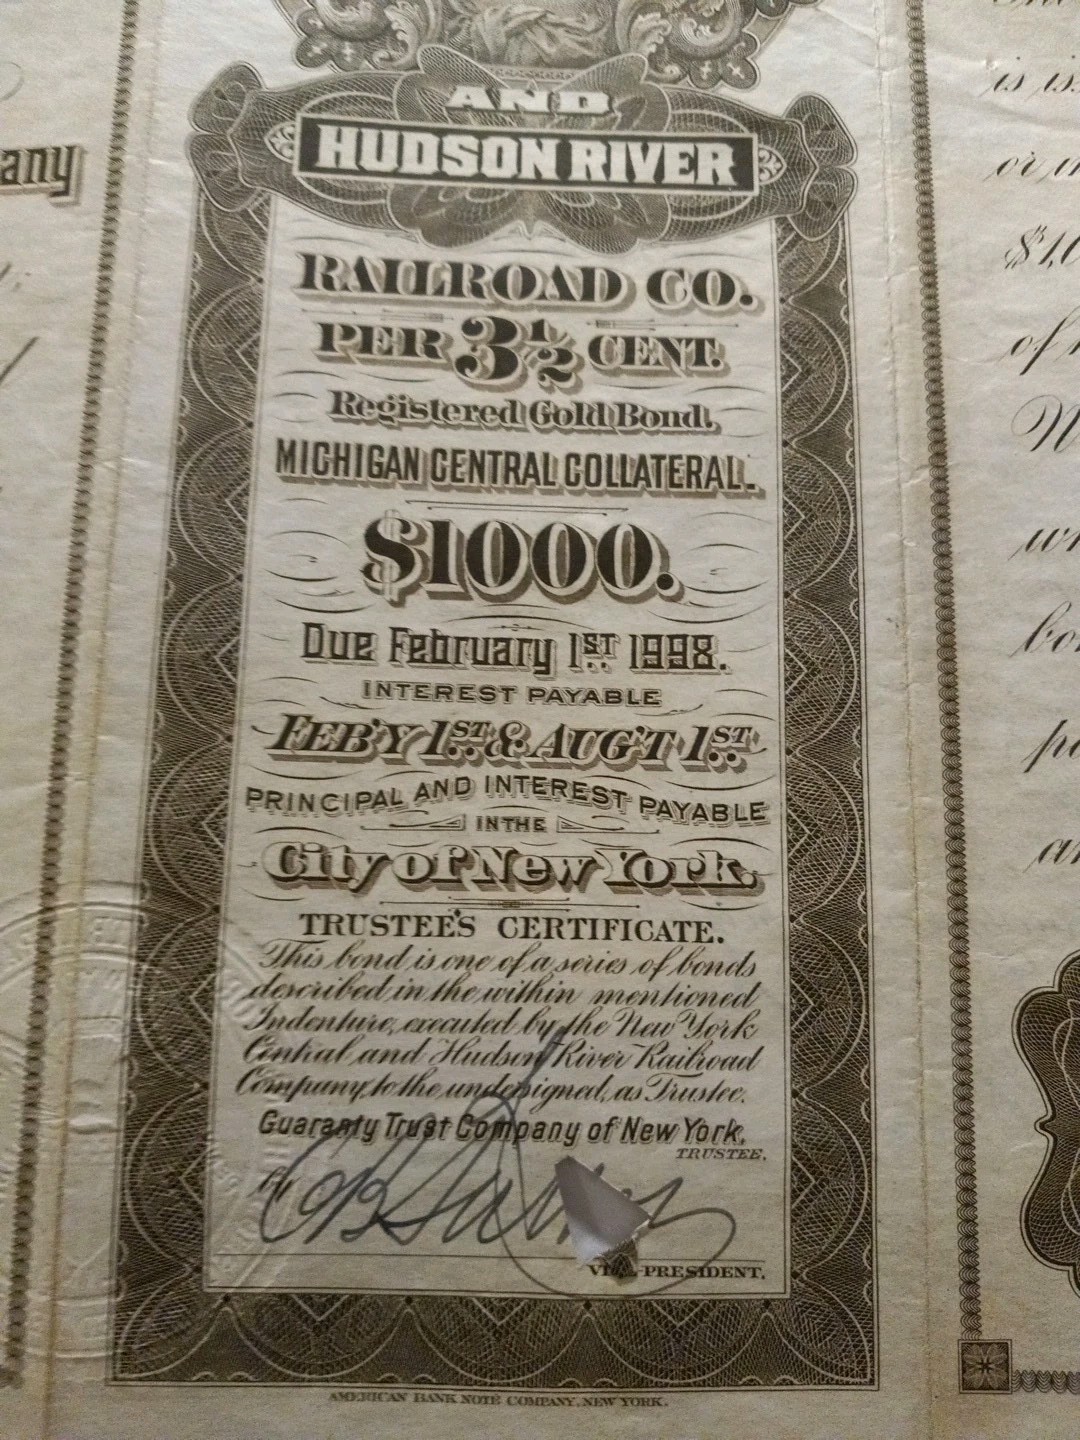 AND
HUDSON RIVER
RAILROAD CO.
PER 3 1/2 CENT.
Registered Gold Bond.
MICHIGAN CENTRAL COLLATERAL.
$1000.
Due February 1ST 1998.
INTEREST PAYABLE
FEB'Y 1ST & AUG'T 1ST
PRINCIPAL AND INTEREST PAYABLE
IN THE
City of New York.
TRUSTEE'S CERTIFICATE.
This bond is one of a series of bonds
described in the within mentioned
Indenture, executed by the New York
Central and Hudson River Railroad
Company, to the undersigned, as Trustee.
Guaranty Trust Company of New York,
TRUSTEE.
By
PRESIDENT.
AMERICAN BANK NOTE COMPANY, NEW YORK.
any
is
or
of